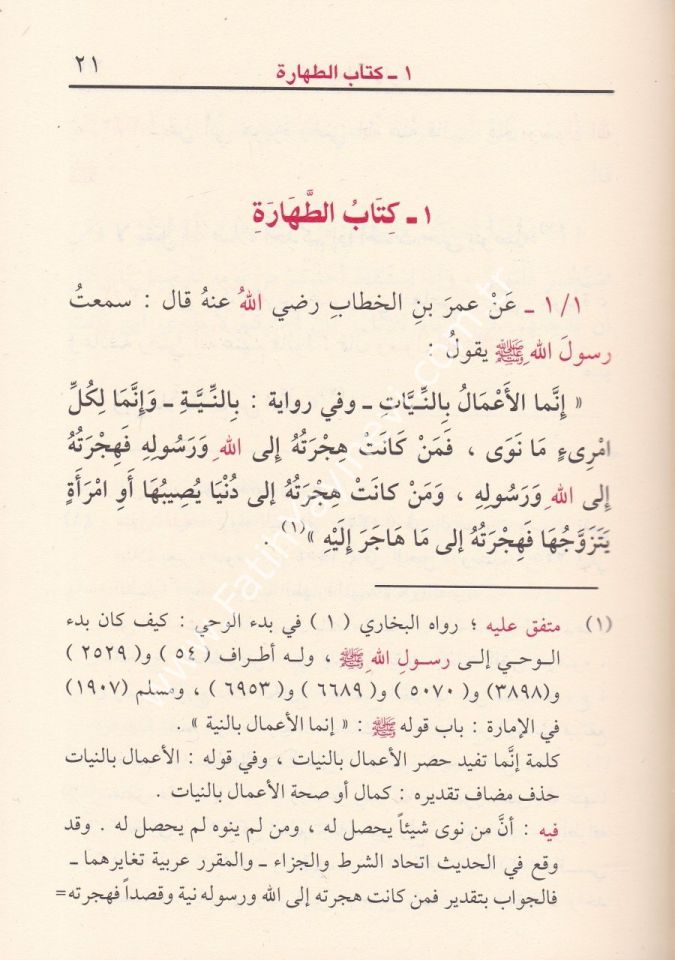 ١ ـ كتاب الطهارة ٢١
١ ـ كِتَابُ الطَّهَارَةِ
١/١ ـ عَنْ عمرَ بنِ الخطابِ رضي اللهُ عنهُ قال : سمعتُ
رسولَ اللهِ ﷺ يقولُ :
« إِنَّما الأَعْمَالُ بالنِّيَّاتِ ـ وفي رواية : بِالنِّيَّةِ ـ وَإِنَّمَا لِكُلِّ
امْرِىءٍ مَا نَوَى ، فَمَنْ كَانَتْ هِجْرَتُهُ إِلى اللهِ وَرَسُولِهِ فَهِجْرَتُهُ
إِلى اللهِ وَرَسُولِهِ ، وَمَنْ كانَتْ هِجْرَتُهُ إلى دُنْيَا يُصِيبُهَا أَوِ امْرَأَةٍ
يَتَزَوَّجُهَا فَهِجْرَتُهُ إلى مَا هَاجَرَ إِلَيْهِ »(١) .
(١) متفق عليه ؛ رواه البخاري ( ١ ) في بدء الوحي : كيف كان بدء
الوحي إلى رسولِ اللهِ ﷺ ، وله أطراف ( ٥٤ ) و( ٢٥٢٩ )
و(٣٨٩٨) و( ٥٠٧٠ ) و( ٦٦٨٩ ) و( ٦٩٥٣ ) ، ومسلم (١٩٠٧)
في الإمارة : باب قوله ﷺ : « إنما الأعمال بالنية » .
كلمة إنَّما تفيد حصر الأعمال بالنيات ، وفي قوله : الأعمال بالنيات
حذف مضاف تقديره : كمال أو صحة الأعمال بالنيات .
فيه : أنَّ من نوى شيئاً يحصل له ، ومن لم ينوه لم يحصل له . وقد
وقع في الحديث اتحاد الشرط والجزاء ـ والمقرر عربية تغايرهما ـ
فالجواب بتقدير فمن كانت هجرته إلى الله ورسوله نية وقصداً فهجرته=